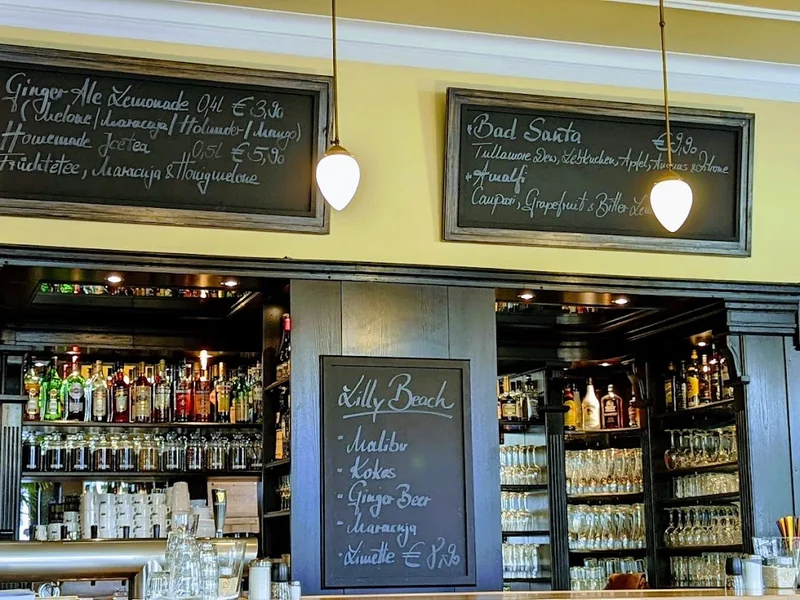 Ginger Ale Lemonade 0,4l € 3,90
(Melone/Maracuja/Holunder/Mango)
Homemade Icetea 0,5l € 5,90
Früchtetee, Maracuja & Honigmelone
Bad Santa € 9,90
Tullamore Dew, Lebkuchen, Apfel, Ananas & Zitrone
Amalfi
Campari, Grapefruit & Bitter
Lilly Beach
- Malibu
- Kokos
- Ginger Beer
- Maracuja
- Limette €